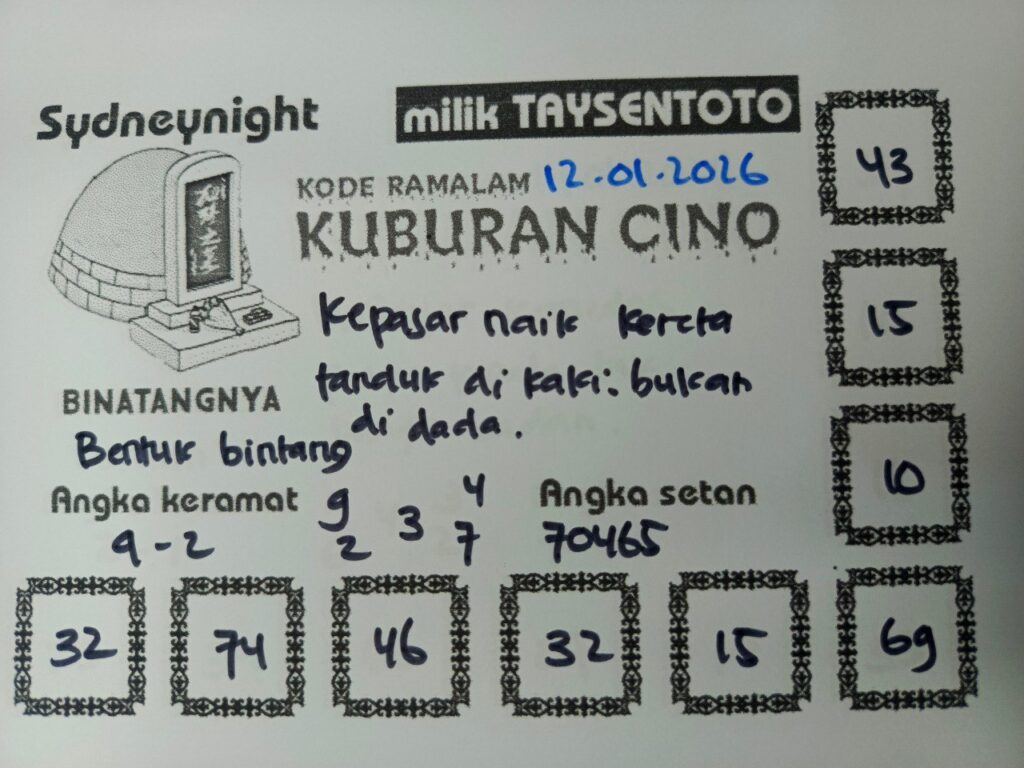 Sydneynight
milik TAYSENTOTO
KODE RAMALAM 12.01.2026
KUBURAN CINO
Kepasar naik kereta
tanduk di kaki: bukan
di dada.
BINATANGNYA
Bentuk bintang
Angka keramat
9 - 2
9 4
3
2 7
Angka setan
70465
43
15
10
32 74 46 32 15 69